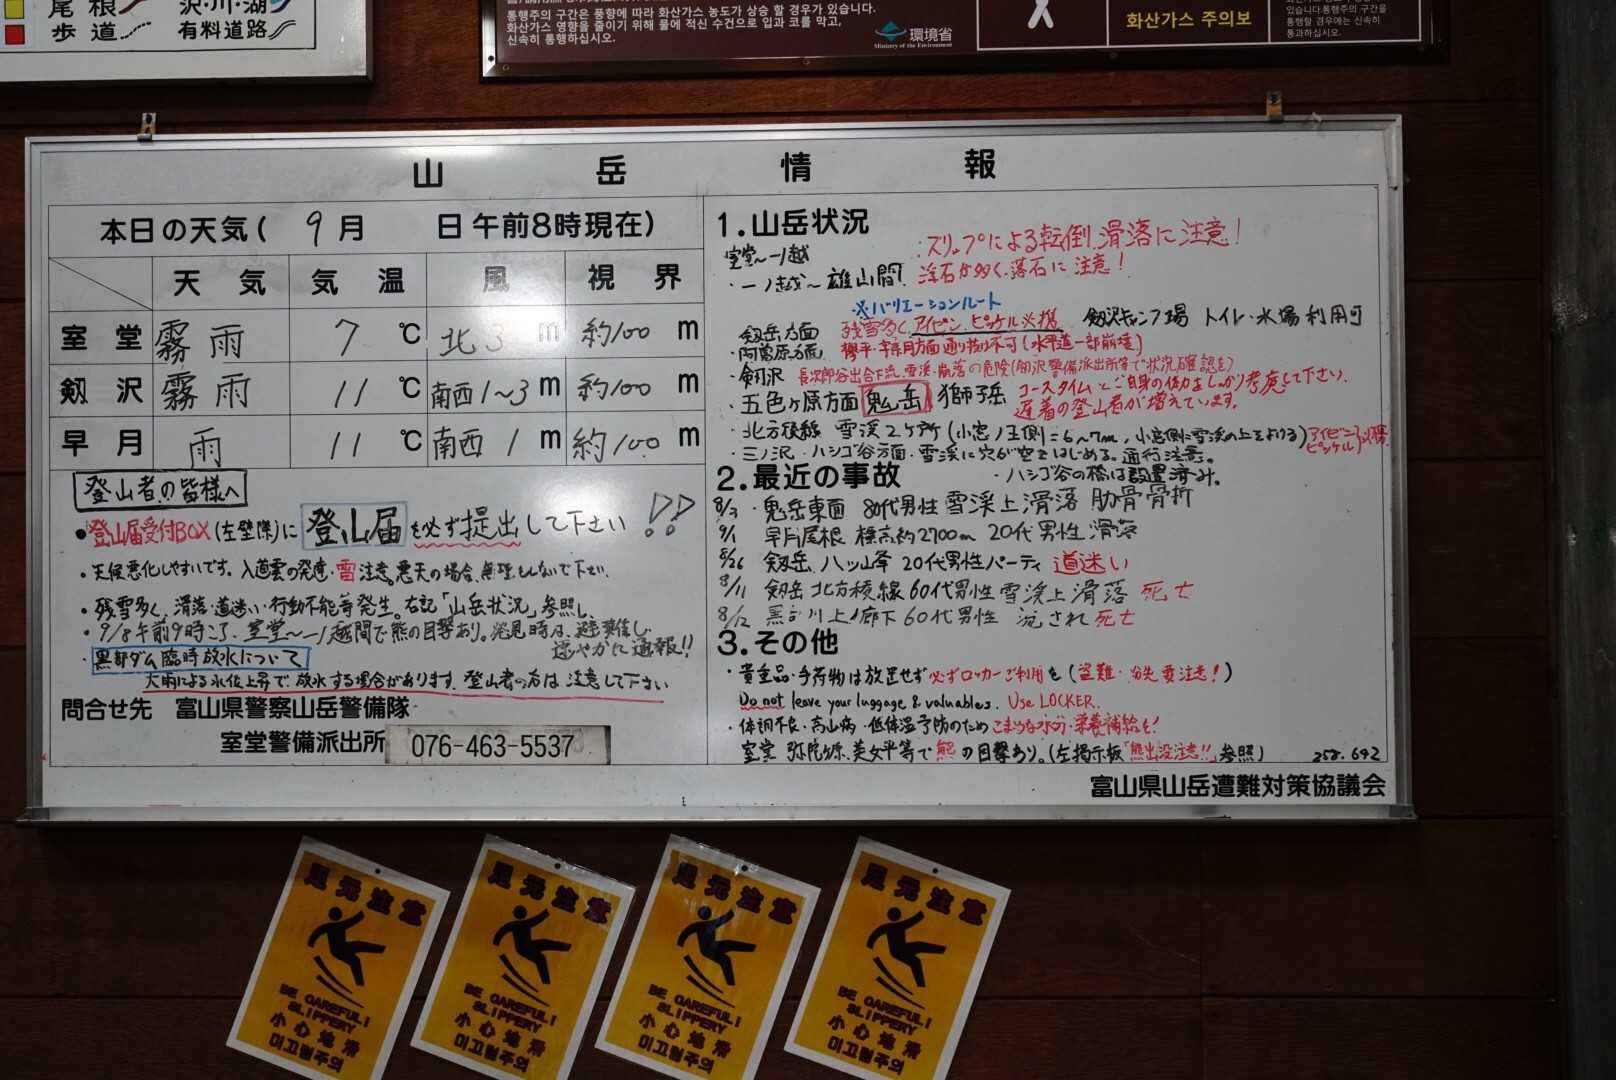 尾根 沢・川・湖
歩道 有料道路
통행주의 구간은 풍향에 따라 화산가스 농도가 상승 할 경우가 있습니다.
화산가스 영향을 줄이기 위해 물에 적신 수건으로 입과 코를 막고,
신속히 통행하십시오.
環境省
Ministry of the Environment
화산가스 주의보
있습니다 통행주의 구간을
통행할 경우에는 신속히
통과하십시오.
山岳情報
本日の天気( 9月 日午前8時現在)
天気 気温 風 視界
室堂 霧雨 7℃ 北3m 約100m
剱沢 霧雨 11℃ 南西1〜3m 約100m
早月 雨 11℃ 南西1m 約100m
登山者の皆様へ
●登山届受付BOX(左壁際)に 登山届 を必ず提出して下さい!!
・天候悪化しやすいです。入道雲の発達・雷注意。悪天の場合、無理をしないで下さい。
・残雪多く、滑落・道迷い・行動不能等発生。右記「山岳状況」参照し、
・9/8午前9時ころ、室堂〜一ノ越間で熊の目撃あり。発見時は、避難し
速やかに通報!!
・黒部ダム臨時放水について
大雨による水位上昇で、放水する場合があります。登山者の方は注意して下さい
問合せ先 富山県警察山岳警備隊
室堂警備派出所 076-463-5537
1.山岳状況
室堂〜一ノ越 :スリップによる転倒、滑落に注意!
・一ノ越〜雄山間 浮石が多く、落石に注意!
※バリエーションルート
剱岳方面 残雪多く、アイゼン、ピッケル必携 剱沢キャンプ場 トイレ・水場利用可
・阿曽原方面 欅平・宇奈月方面通り抜け不可(水平道一部崩壊)
・剱沢 長次郎谷出合下流、雪渓・崩落の危険(剱沢警備派出所等で状況確認を)
・五色ヶ原方面 鬼岳 獅子岳 コースタイムとご自身の体力をしっかり考慮して下さい。
遅着の登山者が増えています。
・北方稜線 雪渓2ヶ所(小窓ノ王側=6〜7m,小窓側は雪渓の上をよける)アイゼン、ピッケル必携
・三ノ沢・ハシゴ谷方面・雪渓に穴が空きはじめる。通行注意。
・ハシゴ谷の橋は設置済み。
2.最近の事故
8/3 鬼岳東面 80代男性 雪渓上滑落 肋骨骨折
9/1 早月尾根 標高約2700m 20代男性滑落
8/26 剱岳 八ッ峰 20代男性パーティ 道迷い
8/11 剱岳北方稜線 60代男性雪渓上滑落 死亡
8/12 黒部川上ノ廊下 60代男性 流され死亡
3.その他
・貴重品・手荷物は放置せず必ずロッカーご利用を(盗難・紛失要注意!)
Do not leave your luggage & valuables. Use LOCKER.
・体調不良・高山病・低体温予防のためこまめな水分・栄養補給を!
室堂 弥陀ヶ原、美女平等で熊の目撃あり。(左掲示板「熊出没注意!!」参照)
258.642
富山県山岳遭難対策協議会
足元注意
BE CAREFUL!
SLIPPERY
小心地滑
미끄럼주의
足元注意
BE CAREFUL!
SLIPPERY
小心地滑
미끄럼주의
足元注意
BE CAREFUL!
SLIPPERY
小心地滑
미끄럼주의
足元注意
BE CAREFUL!
SLIPPERY
小心地滑
미끄럼주의